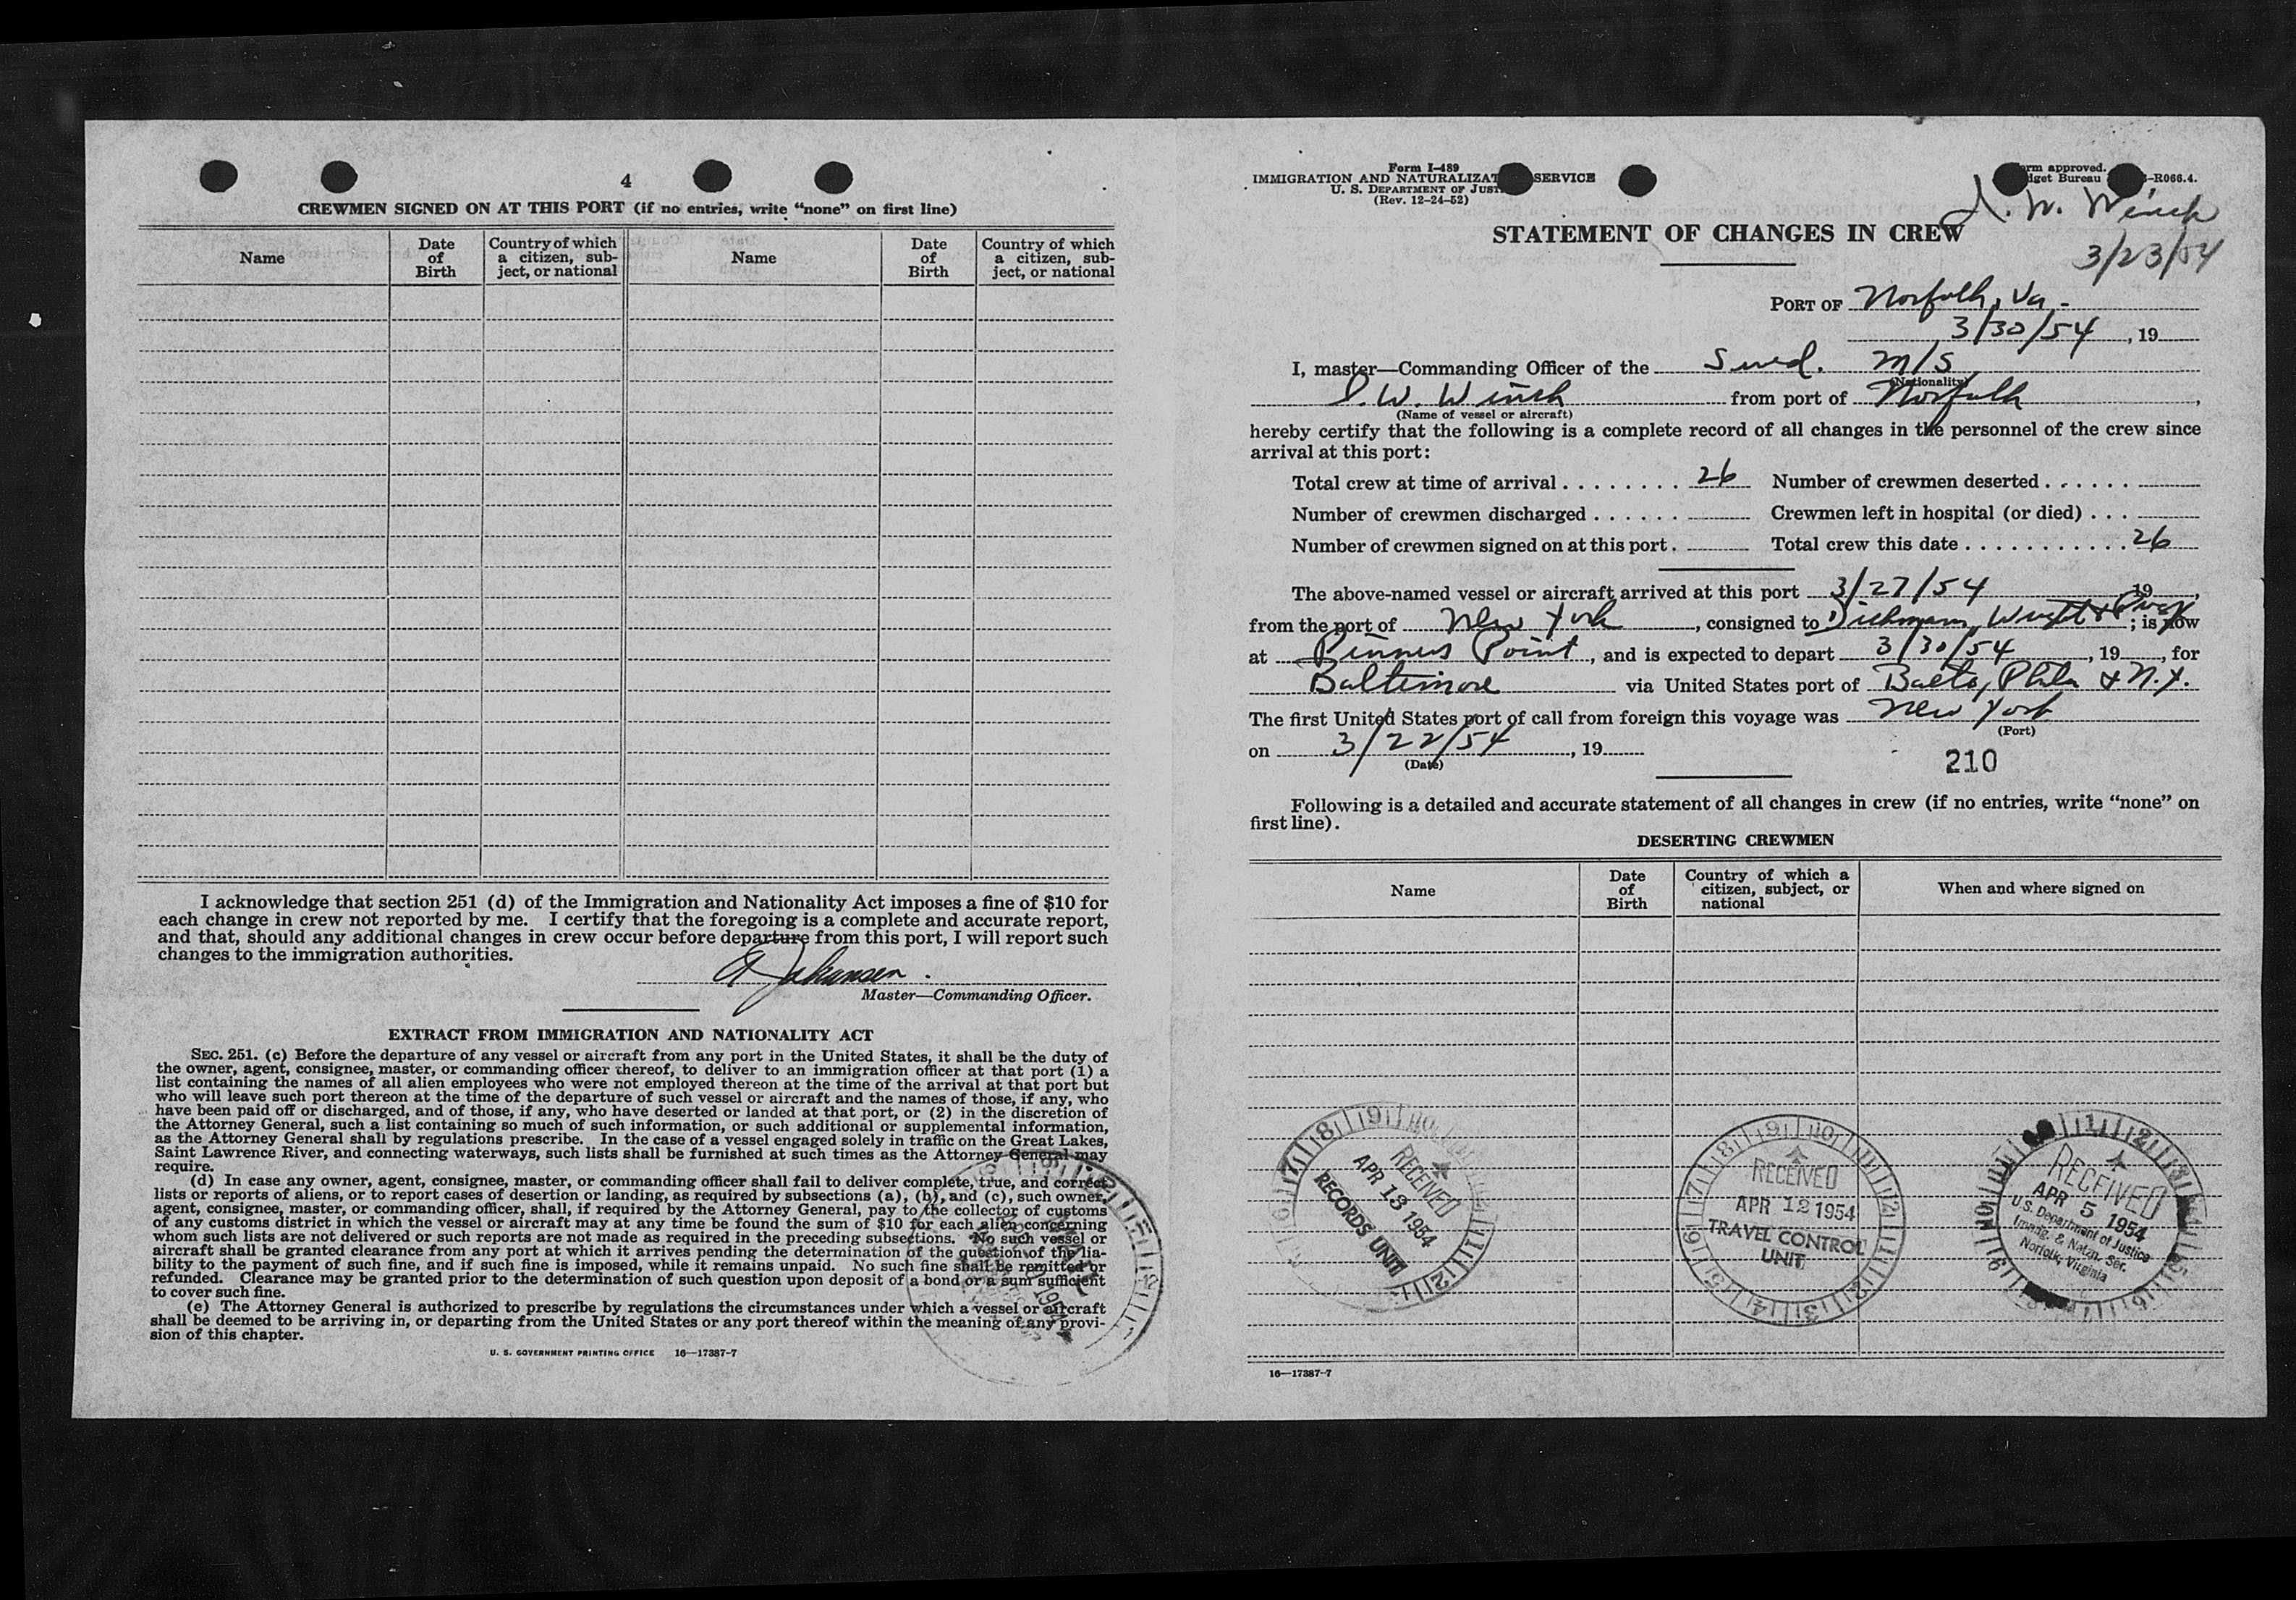 4
CREWMEN SIGNED ON AT THIS PORT (if no entries, write “none” on first line)
Name
Date of Birth
Country of which a citizen, subject, or national
Name
Date of Birth
Country of which a citizen, subject, or national
I acknowledge that section 251 (d) of the Immigration and Nationality Act imposes a fine of $10 for
each change in crew not reported by me. I certify that the foregoing is a complete and accurate report,
and that, should any additional changes in crew occur before departure from this port, I will report such
changes to the immigration authorities.
Master—Commanding Officer.
EXTRACT FROM IMMIGRATION AND NATIONALITY ACT
SEC. 251. (c) Before the departure of any vessel or aircraft from any port in the United States, it shall be the duty of
the owner, agent, consignee, master, or commanding officer thereof, to deliver to an immigration officer at that port (1) a
list containing the names of all alien employees who were not employed thereon at the time of the arrival at that port but
who will leave such port thereon at the time of the departure of such vessel or aircraft and the names of those, if any, who
have been paid off or discharged, and of those, if any, who have deserted or landed at that port, or (2) in the discretion of
the Attorney General, such a list containing so much of such information, or such additional or supplemental information,
as the Attorney General shall by regulations prescribe. In the case of a vessel engaged solely in traffic on the Great Lakes,
Saint Lawrence River, and connecting waterways, such lists shall be furnished at such times as the Attorney General may
require.
(d) In case any owner, agent, consignee, master, or commanding officer shall fail to deliver complete, true, and correct
lists or reports of aliens, or to report cases of desertion or landing, as required by subsections (a), (b), and (c), such owner,
agent, consignee, master, or commanding officer, shall, if required by the Attorney General, pay to the collector of customs
of any customs district in which the vessel or aircraft may at any time be found the sum of $10 for each alien concerning
whom such lists are not delivered or such reports are not made as required in the preceding subsections. No such vessel or
aircraft shall be granted clearance from any port at which it arrives pending the determination of the question of the lia-
bility to the payment of such fine, and if such fine is imposed, while it remains unpaid. No such fine shall be remitted or
refunded. Clearance may be granted prior to the determination of such question upon deposit of a bond or a sum sufficient
to cover such fine.
(e) The Attorney General is authorized to prescribe by regulations the circumstances under which a vessel or aircraft
shall be deemed to be arriving in, or departing from the United States or any port thereof within the meaning of any provi-
sion of this chapter.
U. S. GOVERNMENT PRINTING OFFICE 16—17387-7
Form I-489
IMMIGRATION AND SERVICE
U. S. DEPARTMENT OF
(Rev. 12-24-52)
approved.
Bureau -R066.4.
W. Winch
3/23/54
STATEMENT OF CHANGES IN CREW
PORT OF Norfolk, Va.
3/30/54, 19
I, master—Commanding Officer of the Swed. M/S
(Nationality)
W. Winch from port of Norfolk,
(Name of vessel or aircraft)
hereby certify that the following is a complete record of all changes in the personnel of the crew since
arrival at this port:
Total crew at time of arrival ........ 26 Number of crewmen deserted ......
Number of crewmen discharged ...... Crewmen left in hospital (or died) ...
Number of crewmen signed on at this port. Total crew this date ........... 26
The above-named vessel or aircraft arrived at this port 3/27/54, 19
from the port of New York, consigned to Dichmann, Wright & Pugh; is now
at Pinners Point, and is expected to depart 3/30/54, 19, for
Baltimore via United States port of Balto, Phila & N.Y.
The first United States port of call from foreign this voyage was New York
(Port)
on 3/22/54, 19
(Date)
210
Following is a detailed and accurate statement of all changes in crew (if no entries, write “none” on
first line).
DESERTING CREWMEN
Name
Date of Birth
Country of which a citizen, subject, or national
When and where signed on
RECEIVED
APR 13 1954
RECORDS UNIT
RECEIVED
APR 12 1954
TRAVEL CONTROL
UNIT
RECEIVED
APR 5 1954
U. S. Department of Justice
Immig. & Natzn. Ser.
Norfolk, Virginia
16—17387-7